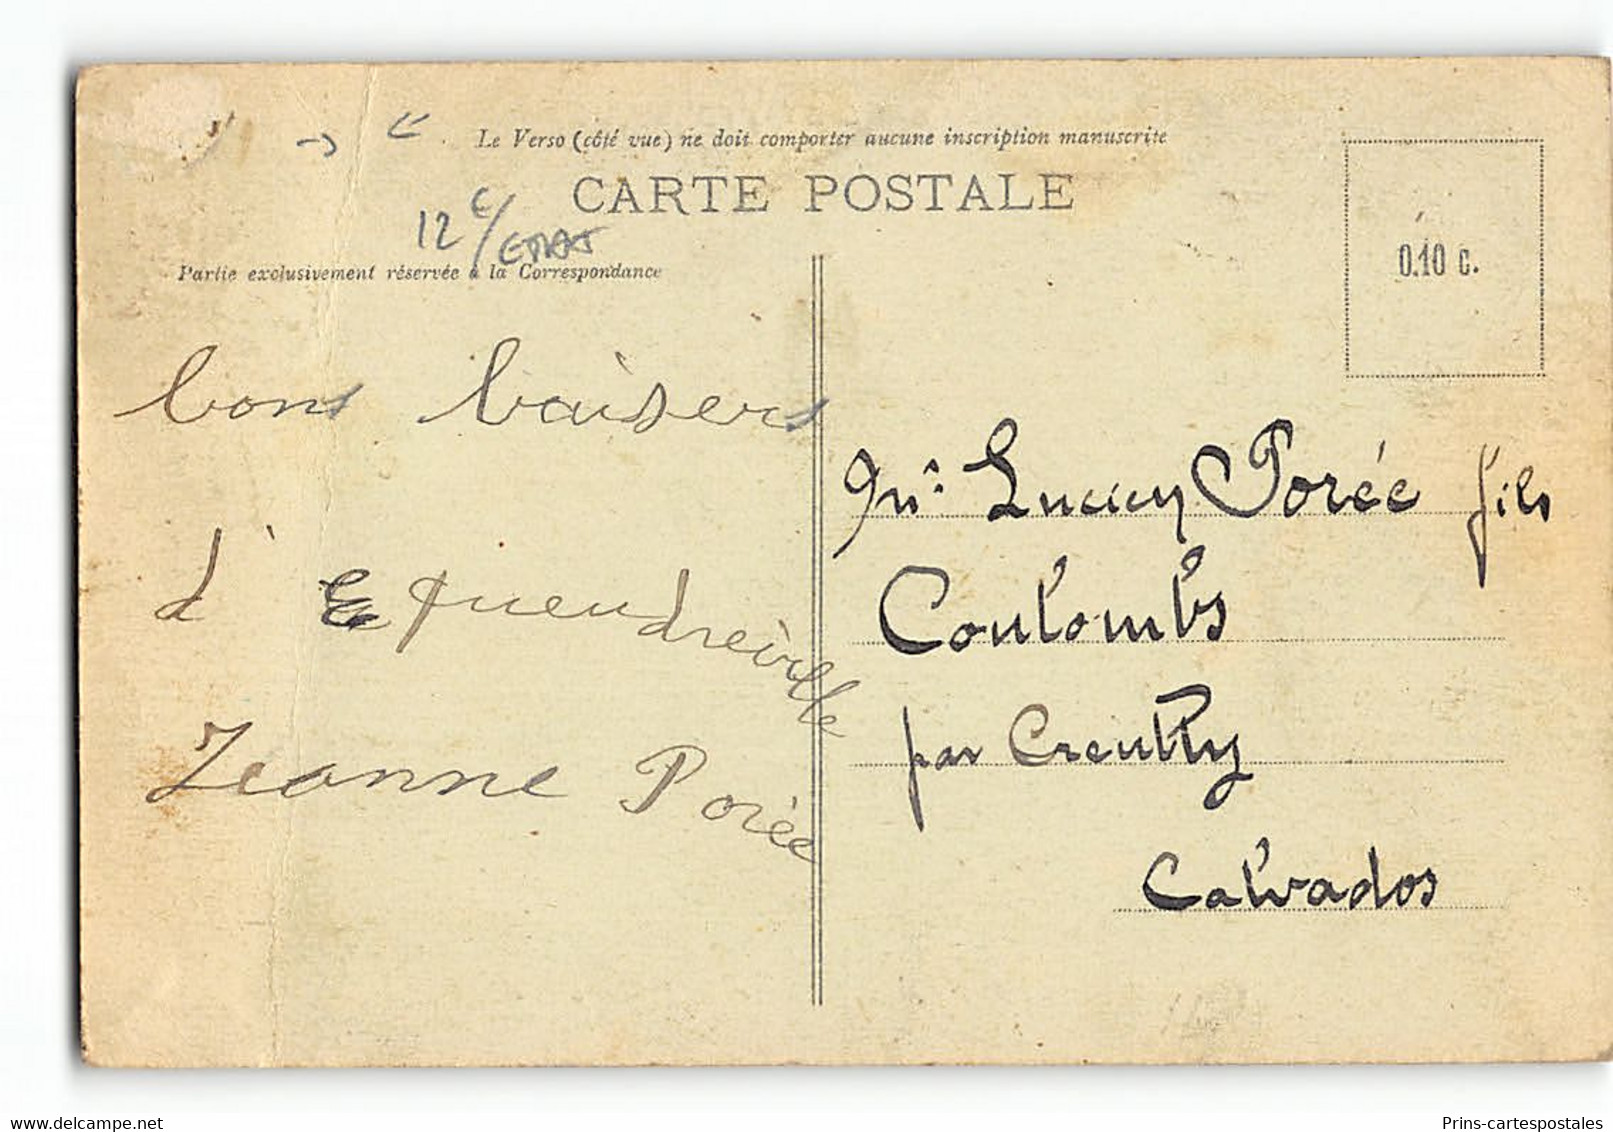 Le Verso (côté vue) ne doit comporter aucune inscription manuscrite
CARTE POSTALE
12 €/ETAT
Partie exclusivement réservée à la Correspondance
0.10 c.
bons baisers
d'Equeudreville
Jeanne Porée
Mr: Lucien Porée fils
Coulombs
par Creully
Calvados
delcampe.net
Prins-cartespostales